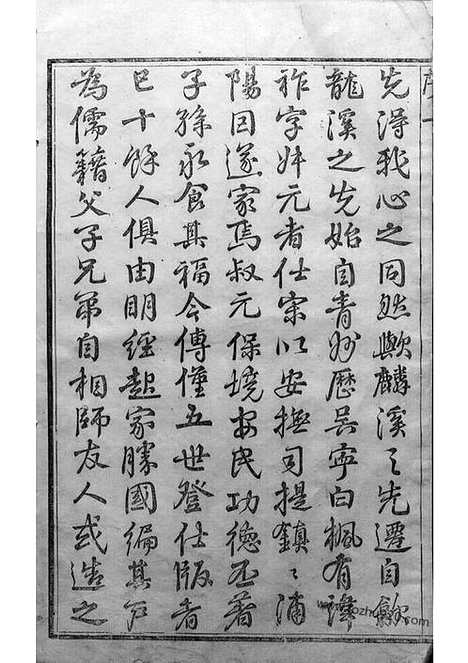 序一
先得我心之同然歟麟溪之先遷自歙
龍溪之先始自青州歷吳寧白楓有諱
祚字叔元者仕宋以安撫司提鎮之浦
陽因遂家焉叔元保境安民功德丕著
子孫永食其福今傳僅五世登仕版者
已十餘人俱由明經起家勝國編其戶
為儒籍父子兄弟自相師友人或造之